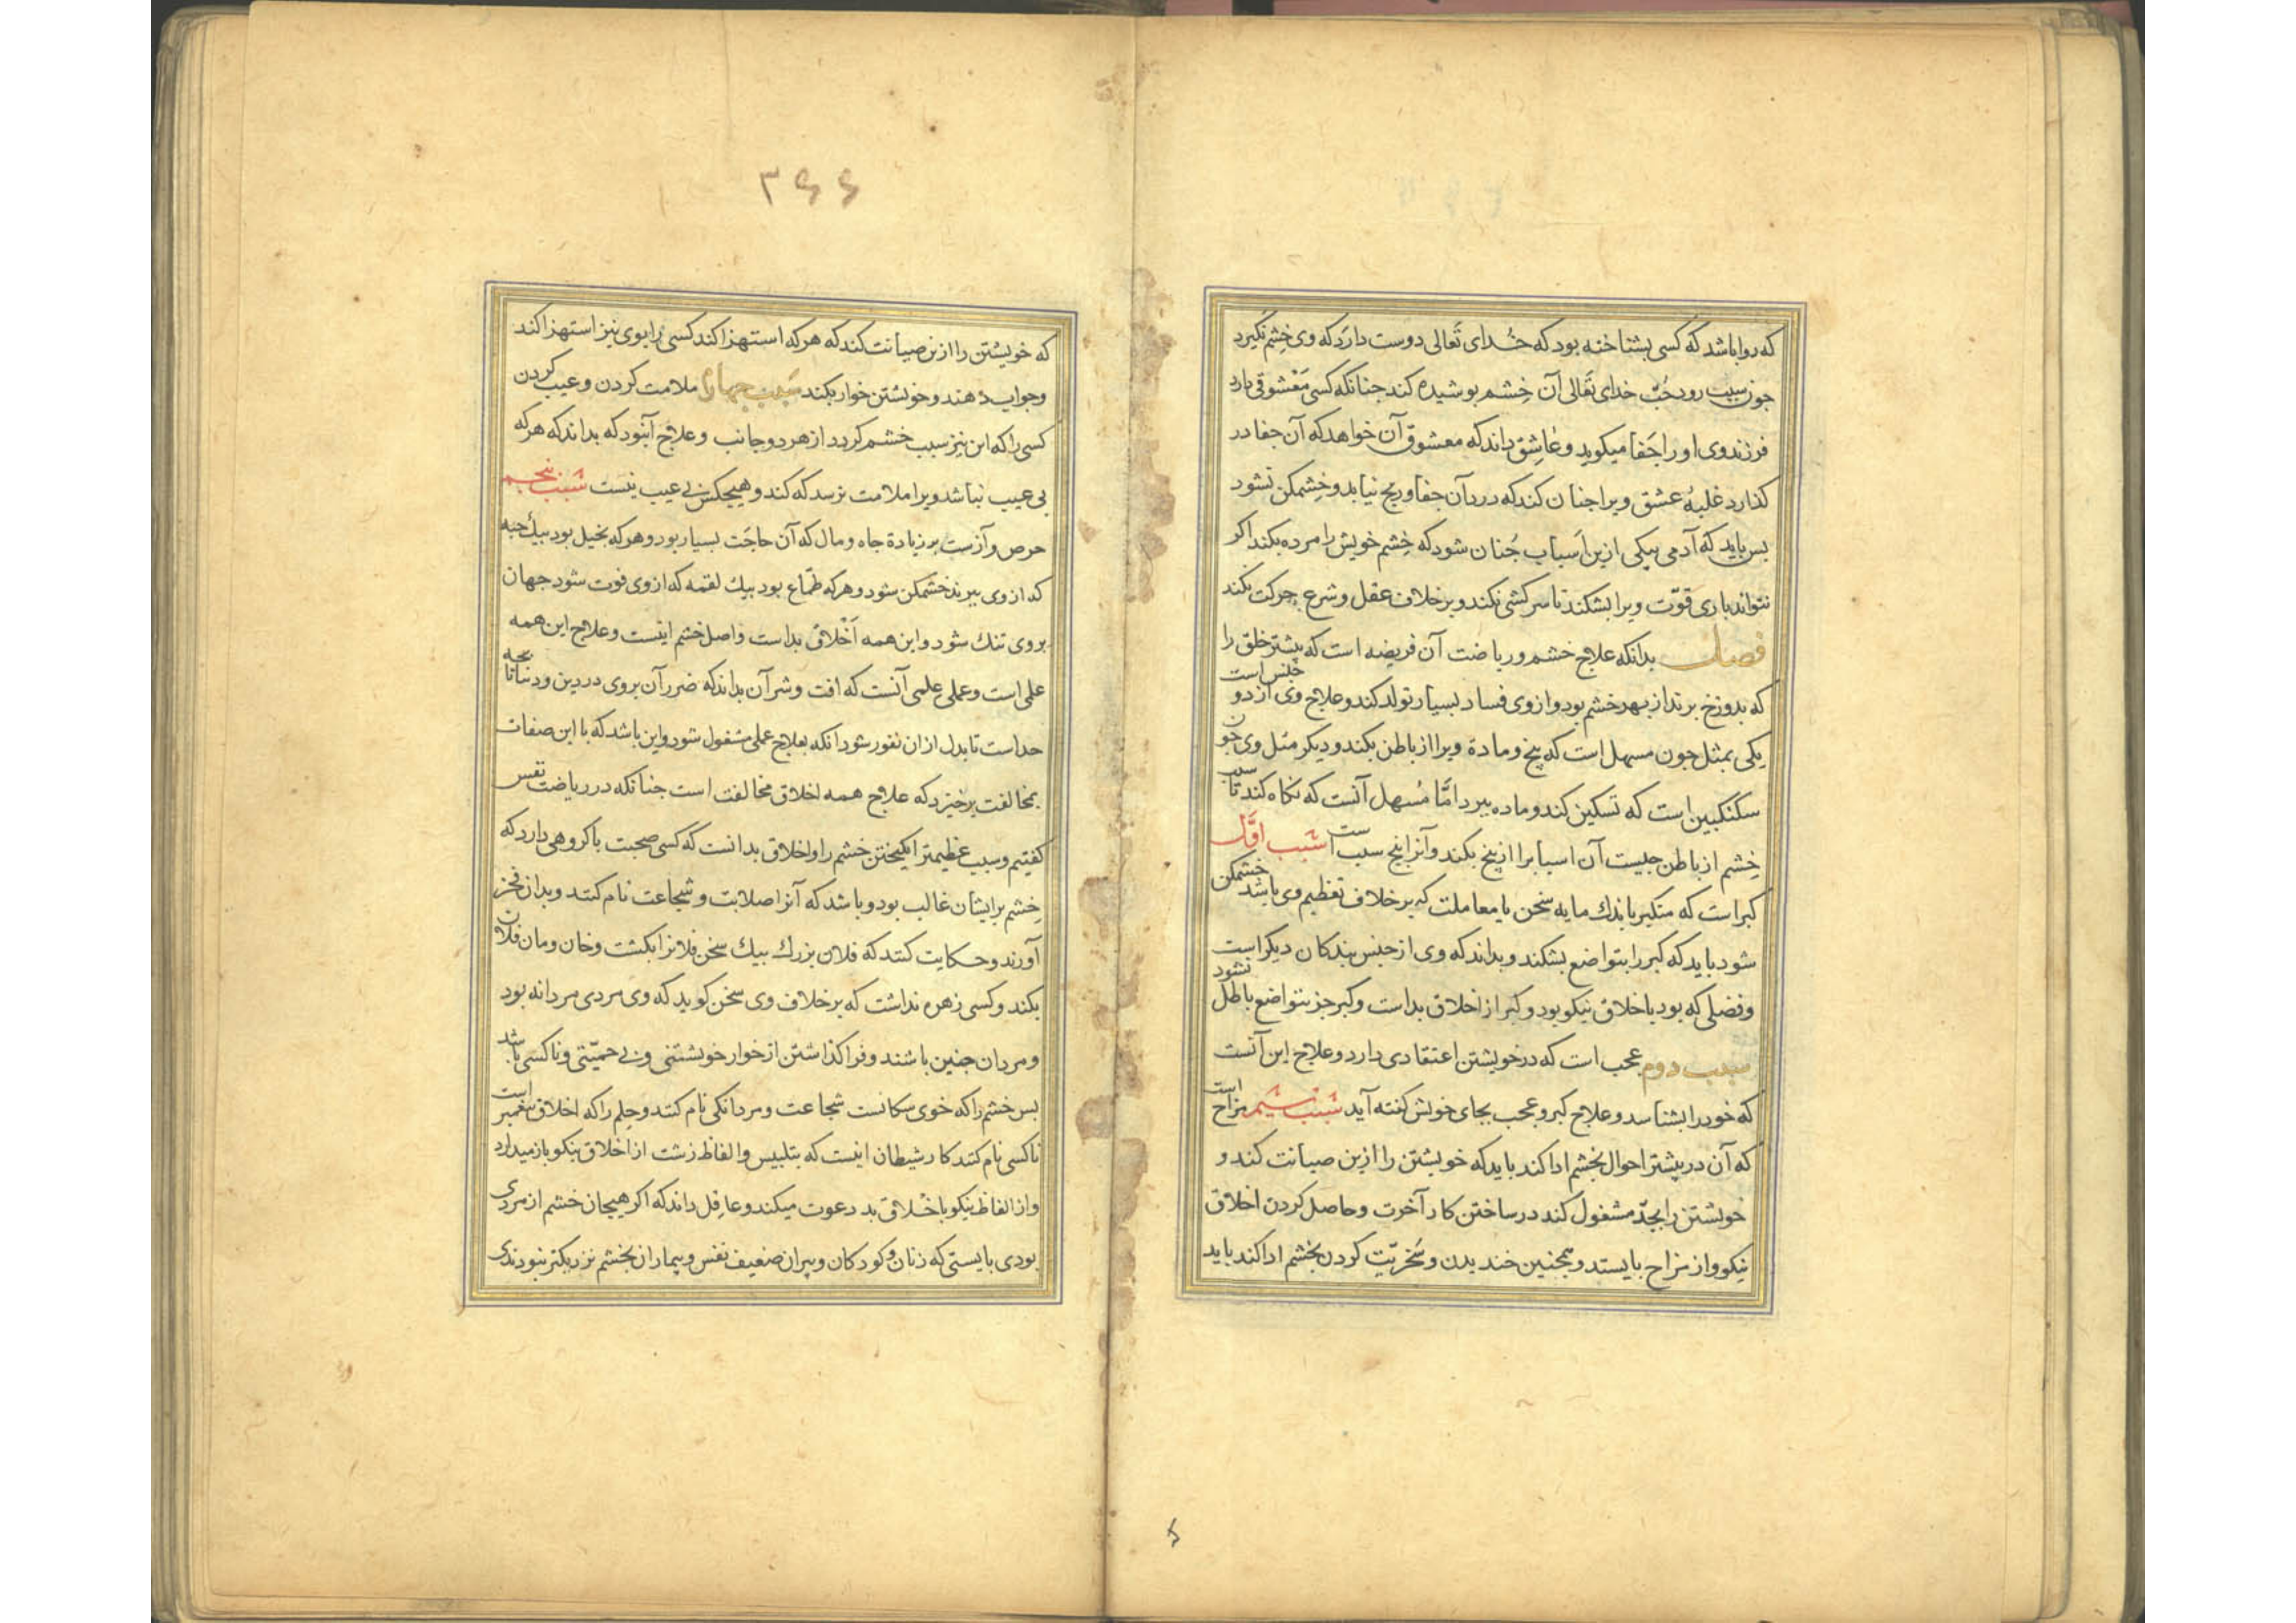 که روا باشد که کسی بشناخته بود که خدای تعالی دوست دارد که وی خشم نگیرد
جون سبب رود حُبّ خدای تعالی آن خشم بوشیده کند جنانکه کسی معشوقی دارد
فرزند وی او را جفا میکوید و عاشق داند که معشوق آن خواهد که آن جفا در
کذارد غلبهٔ عشق ویرا جنان کند که درد آن جفا و رنج نیابد و خشمکن نشود
بس باید که آدمی بیکی ازین اسباب جُنان شود که خشم خویش را مرده بکند اکر
نتواند باری قوّت ویرا بشکند تا سرکشی نکند و برخلاف عقل و شرع حرکت نکند
فصل بدانکه علاج خشم و ریاضت آن فریضه است که بیشتر خلق را
که بدوزخ برند از بهر خشم بود و از وی فساد بسیار تولد کند و علاج وی از دو جنس است
یکی بمثل جون مسهل است که بیخ و مادة ویرا از باطن بکند و دیکر مثل وی جون
سکنکبین است که تسکین کند و ماده ببرد امّا مُسهل آنست که نکاه کند تا سبب
خشم از باطن جیست آن اسبابرا از بیخ بکند و آنرا بنج سبب است سَبب اوَّل
کبر است که متکبر باندك مایه سخن یا معاملت که برخلاف تعظیم وی باشد خشمکن
شود باید که کبر را بتواضع بشکند و بداند که وی از جنس بندکان دیکر است
و فضلی که بود باخلاق نیکو بود و کبر از اخلاق بد است و کبر جز بتواضع باطل نشود
سبب دوم عجب است که در خویشتن اعتقادی دارد و علاج این آنست
که خود را بشناسد و علاج کبر و عجب بجای خویش کفته آید سبب سیم مزاح است
که آن در بیشتر احوال بخشم ادا کند باید که خویشتن را ازین صیانت کند و
خویشتن را بجدّ مشغول کند در ساختن کار آخرت و حاصل کردن اخلاق
نیکو و از مزاح بایستد و همجنین خندیدن و سُخریّت کردن بخشم ادا کند باید
۳۶۶
که خویشتن را ازین صیانت کند که هر که استهزا کند کسی را بوی نیز استهزا کند
و جواب دهند و خویشتن خوار بکند سَبب جهارم ملامت کردن و عیب کردن
کسی را که این نیز سبب خشم کردد از هر دو جانب و علاج آنبود که بداند که هر که
بی عیب نباشد ویرا ملامت نرسد که کند و هیجکس بی عیب نیست سَبب بنجم
حرص و آز ست بر زیادة جاه و مال که آن حاجَت بسیار بود و هر که بخیل بود بیك حبه
که از وی ببرند خشمکن شود و هر که طمّاع بود بیك لقمه که از وی فوت شود جهان
بر وی تنك شود و این همه اَخْلاق بد است و اصل خشم اینست و علاج این همه
علمی است و عملی علمی آنست که افت و شر آن بداند که ضرر آن بر وی در دین و دنیا تا بجه
حد است تا بدل از ان نفور شود انکه بعلاج عملی مشغول شود و این باشد که با این صفات
بمخالفت برخیزد که علاج همه اخلاق مخالفت است جنانکه در ریاضت نفس
کفتیم و سبب عظیمتر انکیختن خشم را و اخلاق بد انست که کسی صحبت با کروهی دارد که
خشم بر ایشان غالب بود و باشد که آنرا صلابت و شجاعت نام کنند و بدان فخر
آورند و حکایت کنند که فلان بزرك بیك سخن فلانرا بکشت و خان و مان فلان
بکند و کسی زهره نداشت که برخلاف وی سخن کوید که وی مردی مردانه بود
و مردان جنین باشند و فرا کذاشتن از خوار خویشتنی و بی حمیّتی و ناکسی باشد
بس خشم را که خوی سکانست شجاعت و مردانکی نام کنند و حِلم را که اخلاق بیغمبر است
ناکسی نام کنند کار شیطان اینست که بتلبیس و الفاظ زشت از اخلاق نیکو باز میدارد
و از الفاظ نیکو باخْلاق بد دعوت میکند و عاقل داند که اکر هیجان خشم از مردی
بودی بایستی که زنان و کودکان و بیران ضعیف نفس و بیماران بخشم نزدیکتر نبودندی